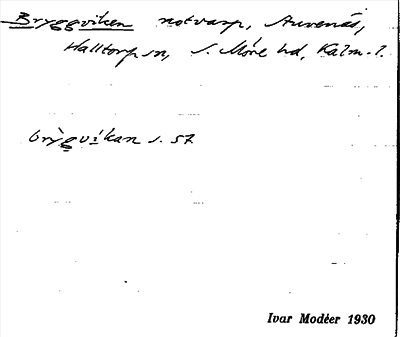 Bryggviken notvarp, Arvenäs,
Halltorp sn, S. Möre hd, Kalm. l.
bry̆gvikan s. 57
Ivar Modéer 1930